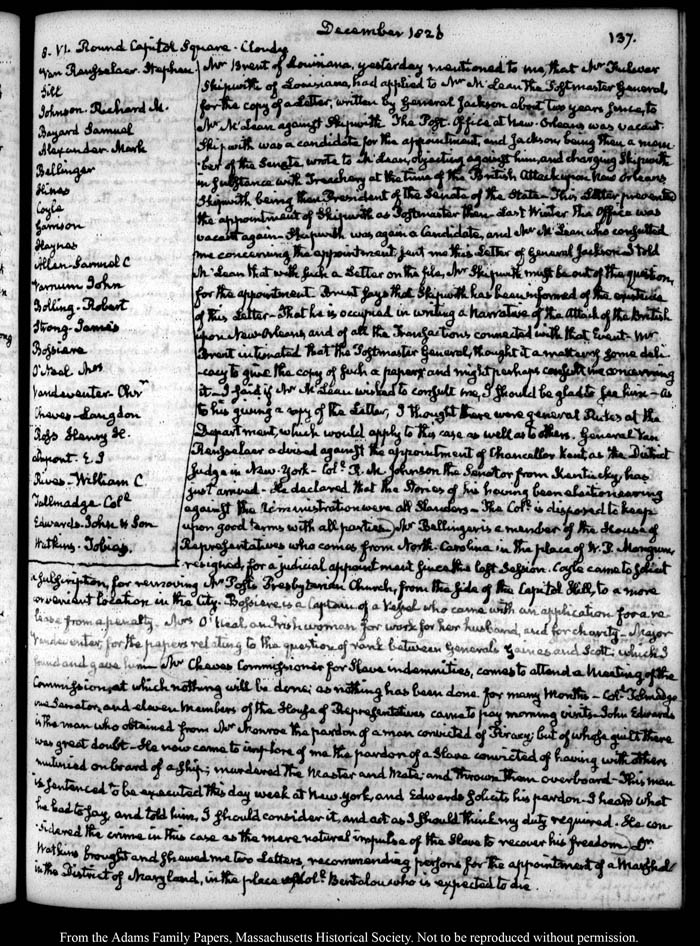 December 1826
137.
8. VI. Round Capitol Square. Cloudy
Van Rensselaer Stephen
Sill
Johnson Richard M.
Bayard Samuel
Alexander Mark
Bellinger
Hines
Coyle
Gamson
Haynes
Allen Samuel C
Varnum John
Bolling Robert
Strong James
Bossiere
O'Neal Mrs
Vandeventer Chr.
Cheves Langdon
Ross Henry H.
Dupont. E. I
Rives William C
Tallmadge Col.
Edwards John & Son
Watkins. Tobias.
Mr Brent of Louisiana, yesterday mentioned to me, that Mr Fulwar
Skipwith of Louisiana, had applied to Mr McLean the Postmaster General,
for the copy of a Letter, written by General Jackson about two years since, to
Mr McLean against Skipwith. The Post Office at New-Orleans was vacant.
Skipwith was a candidate for the appointment, and Jackson being then a mem-
ber of the Senate wrote to McLean, objecting against him, and charging Skipwith
in substance with Treachery at the time of the British Attack upon New Orleans
Skipwith being then President of the Senate of the State- This Letter prevented
the appointment of Skipwith as Postmaster then- Last Winter the Office was
vacant again- Skipwith was again a Candidate, and Mr McLean who consulted
me concerning the appointment, sent me this Letter of General Jackson. I told
McLean that with such a Letter on the files, Mr Skipwith must be out of the question,
for the appointment. Brent says that Skipwith has been informed of the existence
of this Letter- That he is occupied in writing a Narrative of the Attack of the British
upon New-Orleans, and of all the Transactions connected with that Event- Mr
Brent intimated that the Postmaster General, thought it a matter of some deli-
-cacy to give the copy of such a paper, and might perhaps consult me concerning
it- I said if Mr McLean wished to consult me, I should be glad to see him- as
to his giving a copy of the Letter, I thought there were general Rules at the
Department, which would apply to this case as well as to others. General Van
Rensselaer advised against the appointment of Chancellor Kent, as the District
Judge in New-York- Col. R. M. Johnson the Senator from Kentucky, has
just arrived- He declared that the Stories of his having been electioneering
against the Administration were all Slanders- The Col. is disposed to keep
upon good terms with all parties. Mr Bellinger is a member of the House of
Representatives who comes from North-Carolina in the place of W. P. Mangum,
resigned, for a judicial appointment since the last Session. Coyle came to solicit
a subscription, for removing Mr Post's Presbyterian Church, from the side of the Capitol Hill, to a more
convenient location in the City. Bossiere is a Captain of a Vessel who came with an application for a re-
lease from a penalty. Mrs O'Neal an Irish woman for work for her husband, and for charity- Major
Vandeventer, for the papers relating to the question of rank between Generals Gaines and Scott; which I
found and gave him- Mr Cheves Commissioner for Slave indemnities, comes to attend a Meeting of the
Commission, at which nothing will be done; as nothing has been done for many Months- Col. Talmadge
one Senator, and eleven Members of the House of Representatives came to pay morning visits- John Edwards
is the man who obtained from Mr Monroe the pardon of a man convicted of Piracy, but of whose guilt there
was great doubt- He now came to implore of me the pardon of a Slave convicted of having with others
mutinied on board of a Ship; murdered the Master and Mate, and thrown them overboard- This man
is sentenced to be executed this day week at New York, and Edwards solicits his pardon. I heard what
he had to say, and told him, I should consider it, and act as I should think my duty required. He con-
-sidered the crime in this case as the mere natural impulse of the Slave to recover his freedom. Dr
Watkins brought and shewed me two Letters, recommending persons for the appointment of a Marshal
in the District of Maryland, in the place of Col. Bentalou who is expected to die
From the Adams Family Papers, Massachusetts Historical Society. Not to be reproduced without permission.